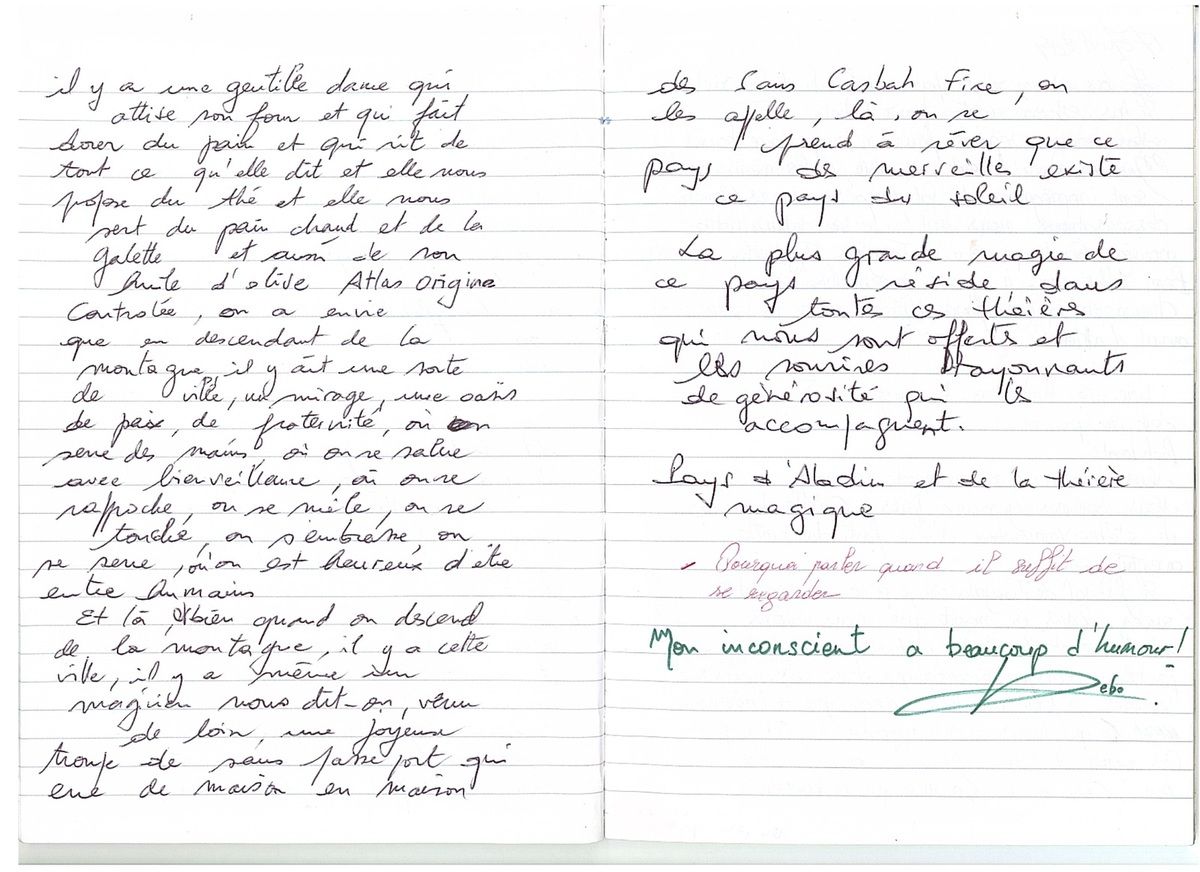 il y a une gentille dame qui
attise son four et qui fait
dorer du pain et qui rit de
tout ce qu'elle dit et elle nous
propose du thé et elle nous
sert du pain chaud et de la
galette et aussi de son
huile d'olive Atlas Origine
Controlée, on a envie
que en descendant de la
montagne, il y ait une sorte
de ville, un mirage, une oasis
de paix, de fraternité, où on
serre des mains, où on se salue
avec bienveillance, où on se
rapproche, on se mêle, on se
touche, on s'embrasse, on
se serre, où on est heureux d'être
entre humains
Et là, bien quand on descend
de la montagne, il y a cette
ville, il y a même un
magicien nous dit-on, venu
de loin, une joyeuse
troupe de sans passeport qui
erre de maison en maison
des Sans Casbah Fixe, on
les appelle, là, on se
prend à rêver que ce
pays des merveilles existe
ce pays du soleil
La plus grande magie de
ce pays réside dans
toutes ces théières
qui nous sont offerts et
les sourires rayonnants
de générosité qui les
accompagnent.
Pays d'Aladin et de la théière
magique
- Pourquoi parler quand il suffit de
se regarder
Mon inconscient a beaucoup d'humour!
Debo